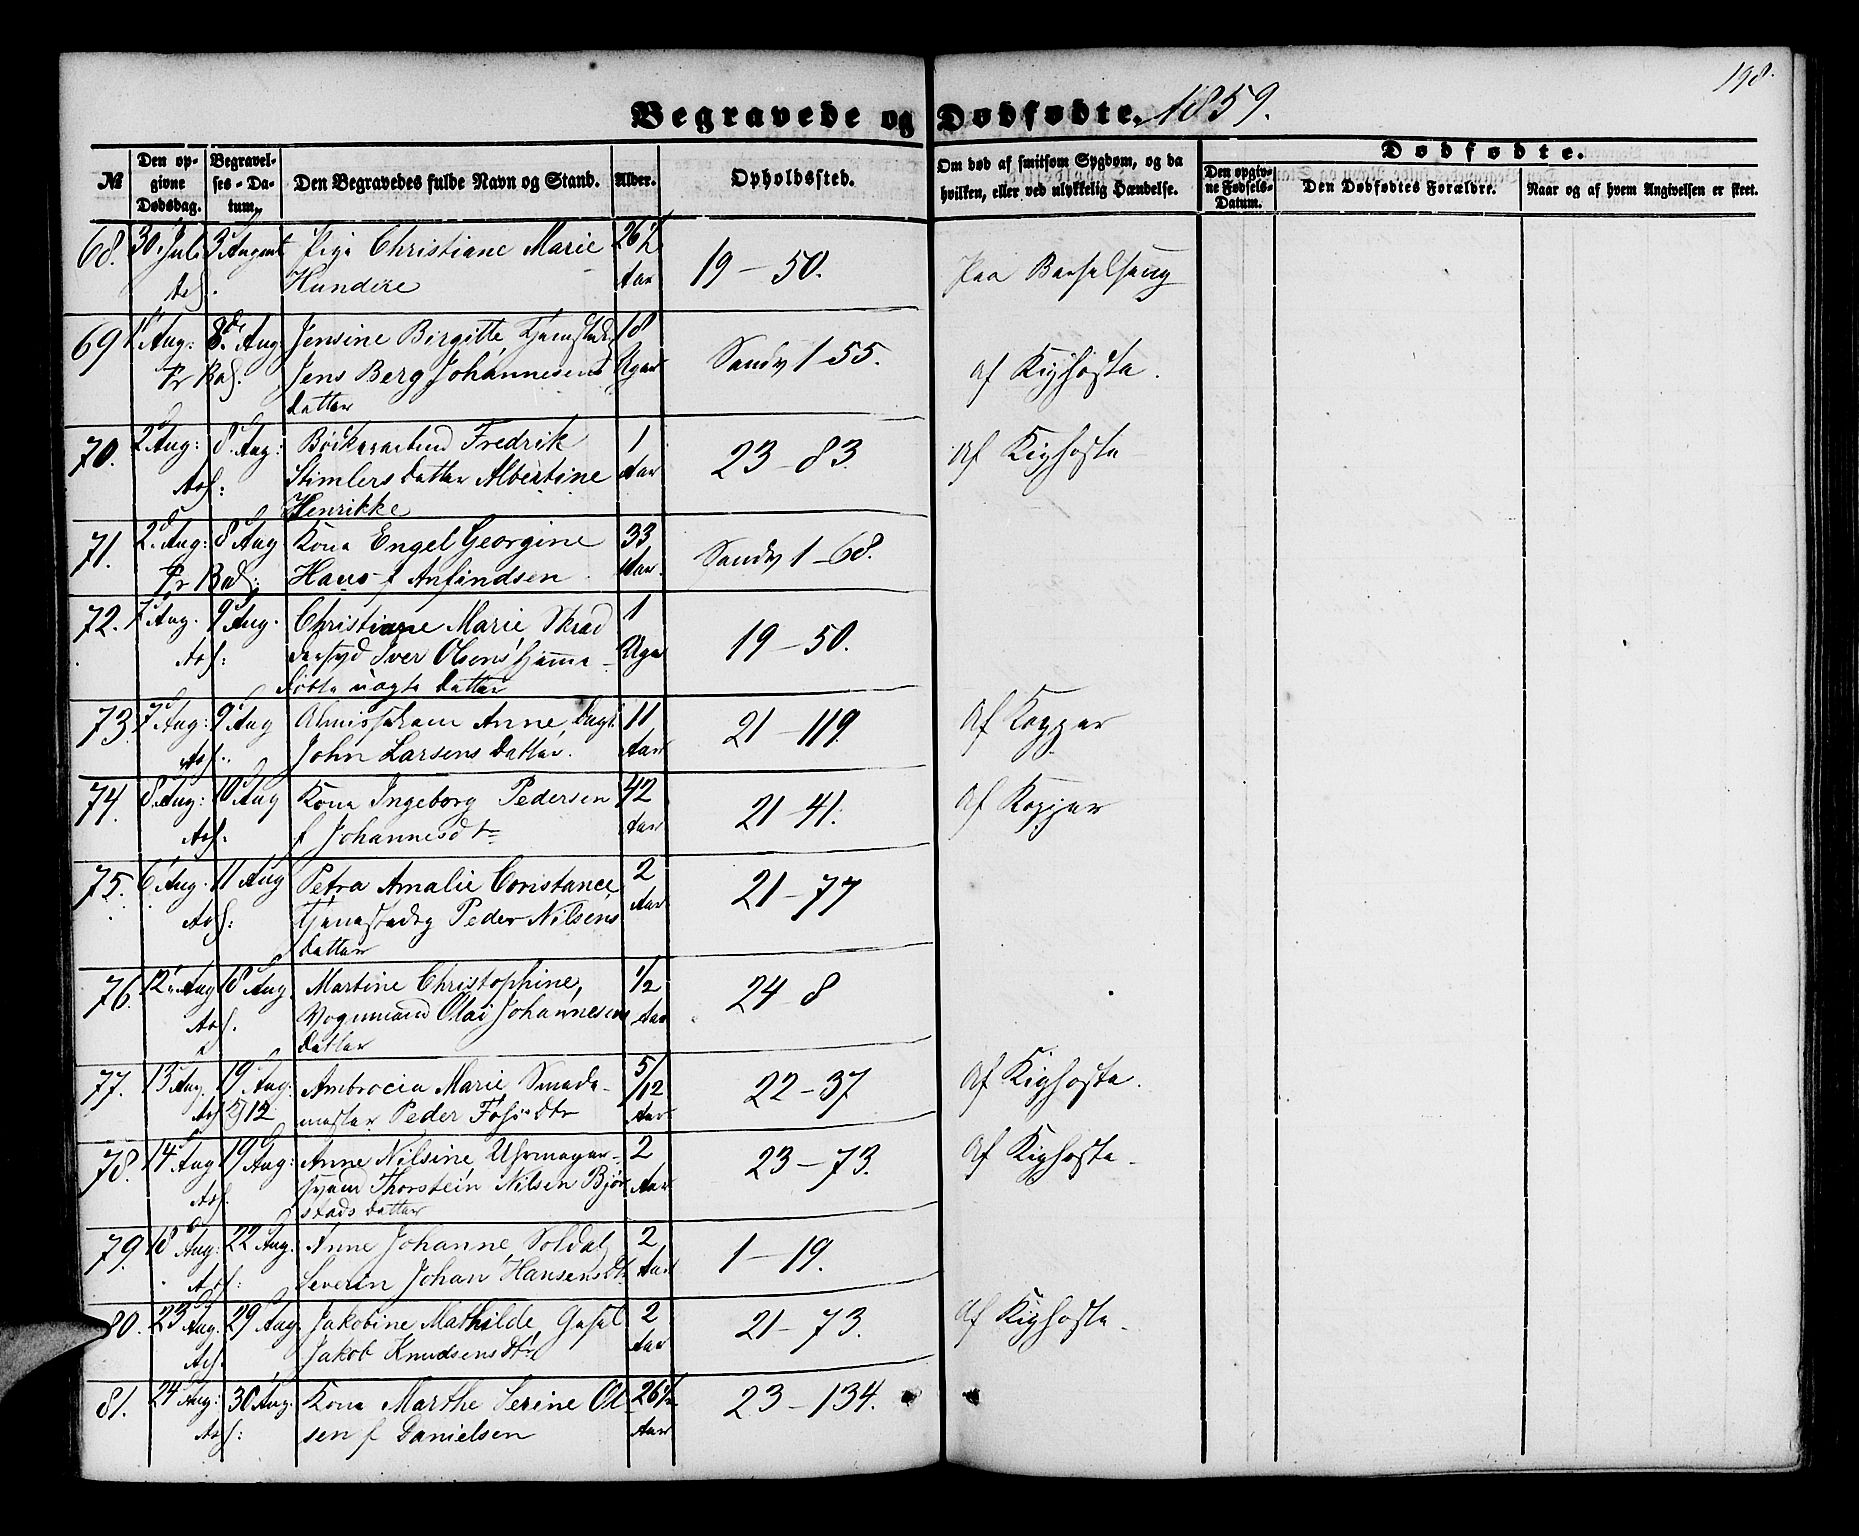 198.
Begravede og Dødfødte. 1859.
№
Den opgivne Dødsdag.
Begravelses-Datum.
Den Begravedes fulde Navn og Stand.
Alder.
Opholdssted.
Om død af smitsom Sygdom, og da hvilken, eller ved ulykkelig Hændelse.
Dødfødte.
Den opgivne Fødsels-Datum.
Den Dødfødtes Forældre.
Naar og af hvem Angivelsen er skeet.
68. 30 Juli 3 August Pige Christiane Marie 26½
Hundere Aar 19-50. Paa Barselseng
69 1 Aug: 8de Aug Jensine Birgitte, 18
Jens Berg Johannesens Uger Sandv 1-55. Af Kighoste.
datter
70. 2 Aug: 8 Aug: Fredrik 1
Stimlers datter Albertine Aar 23-83. Af Kighoste
Henrikke
71. 2 Aug: 8 Aug Kone Engel Georgine 33
Hans f Anfindsen Aar Sandv 1-68.
72. 7 Aug. 9 Aug. Christiane Marie, Skrad
1
Iver Olsens hjemme Uge 19-50.
døbte uægte datter
73. 7 Aug: 9 Aug Anne, 11
John Larsens datter. Aar 21-119. Af Kopper
74. 8 Aug: 10 Aug Kone Ingeborg Pedersen 42
f Johannesdtr Aar 21-41. Af Kopper
75. 6 Aug. 11 Aug Petra Amalie Constance 2
Peder Nilsens Aar 21-77
datter
76. 12 Aug 18 Aug. Martine Christophine, ½
Vognmand Olai Johannesens Aar 24-8
datter
77. 13 Aug 19 Aug: Ambrocia Marie Smede- 5/12
mester Peder dtr Aar 22-37 Af Kighoste.
78. 14 Aug 19 Aug: Anne Nilsine Uhrmager- 2
svend Thorstein Nilsen Bjør Aar 23-73. Af Kighoste
stads datter
79. 18 Aug: 22 Aug. Anne Johanne, Soldat 2
Severin Johan Hansens dtr Aar 1-19.
80. 23 Aug. 29 Aug Jakobine Mathilde 2
Jakob Knudsens dtr Aar 21-73. Af Kighoste
81. 24 Aug: 30 Aug. Kone Marthe Serine Ol- 26½
sen f Danielsen Aar 23-134.